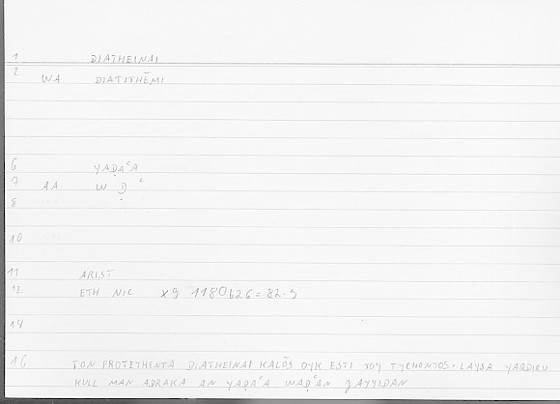 1 DIATHEINAI
2 WA DIATITHĒMI
6 YAḌAʿA
7 AA W Ḍ ʿ
8
10
11 ARIST
12 ETH NIC X9 1180b26=82.9
14
16 TON PROTETHENTA DIATHEINAI KALŌS OYK ESTI TOY TYCHONTOS. LAYSA YAQDIRU
KULL MAN ADRAKA AN YAḌAʿA WAḌʿAN ǦAYYIDAN